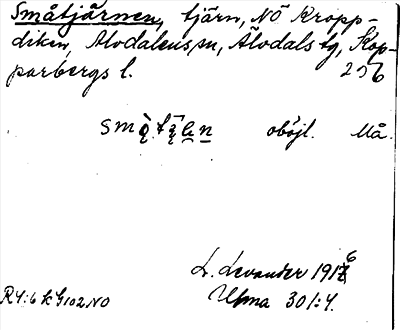 Småtjärnen, tjärn, NÖ Kropp-
diken, Älvdalens sn, Älvdals tg, Kop-
parbergs l. 256
oböjl. Må.
L. Levander 1916
Ulma 301:4.
R4:6 k G102 NO